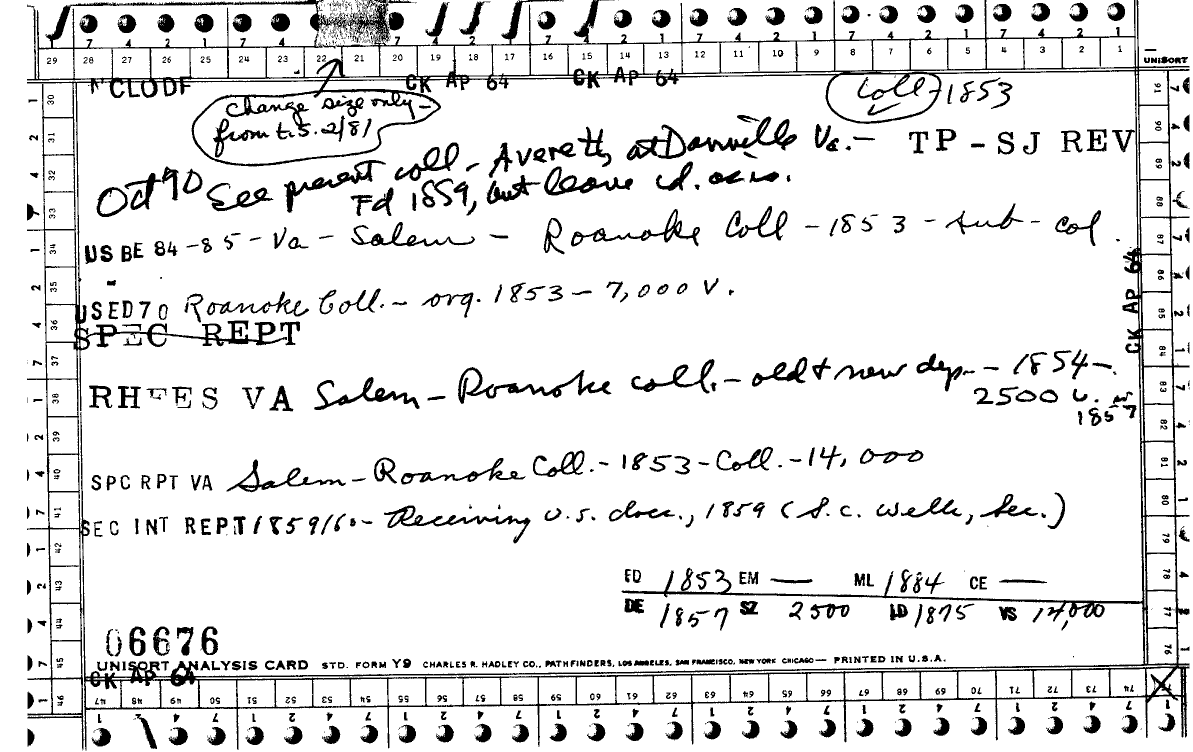 7 4 2 1 7 4 7 4 2 1 7 4 2 1 7 4 2 1 7 4 2 1
29 28 27 26 25 24 23 22 21 20 19 18 17 16 15 14 13 12 11 10 9 8 7 6 5 4 3 2 1
UNISORT
NCLODF CK AP 64 CK AP 64 Coll-1853
Change size only-
from t.s. 2/81
Oct 90 See present coll - Averett, at Danville Va.- TP-SJ REV
Fd 1859, but leave id. as is.
US BE 84-85-Va- Salem - Roanoke Coll -1853 - sub-col.
USED70 Roanoke Coll.- org. 1853-7,000 V.
SPEC REPT
RHEES VA Salem-Roanoke coll.-old & new dep- 1854-
2500 v. in
1857
SPC RPT VA Salem-Roanoke Coll.-1853-Coll.-14,000
SEC INT REPT 1859/60- Receiving U.S. docs., 1859 (S.C. Wells, Sec.)
FD 1853 EM — ML 1884 CE —
DE 1857 SZ 2500 LD 1875 VS 14,000
06676
UNISORT ANALYSIS CARD STD. FORM Y9 CHARLES R. HADLEY CO., PATHFINDERS, LOS ANGELES, SAN FRANCISCO, NEW YORK CHICAGO— PRINTED IN U.S.A.
CK AP 64
CK AP 64
47 48 49 50 51 52 53 54 55 56 57 58 59 60 61 62 63 64 65 66 67 68 69 70 71 72 73 74